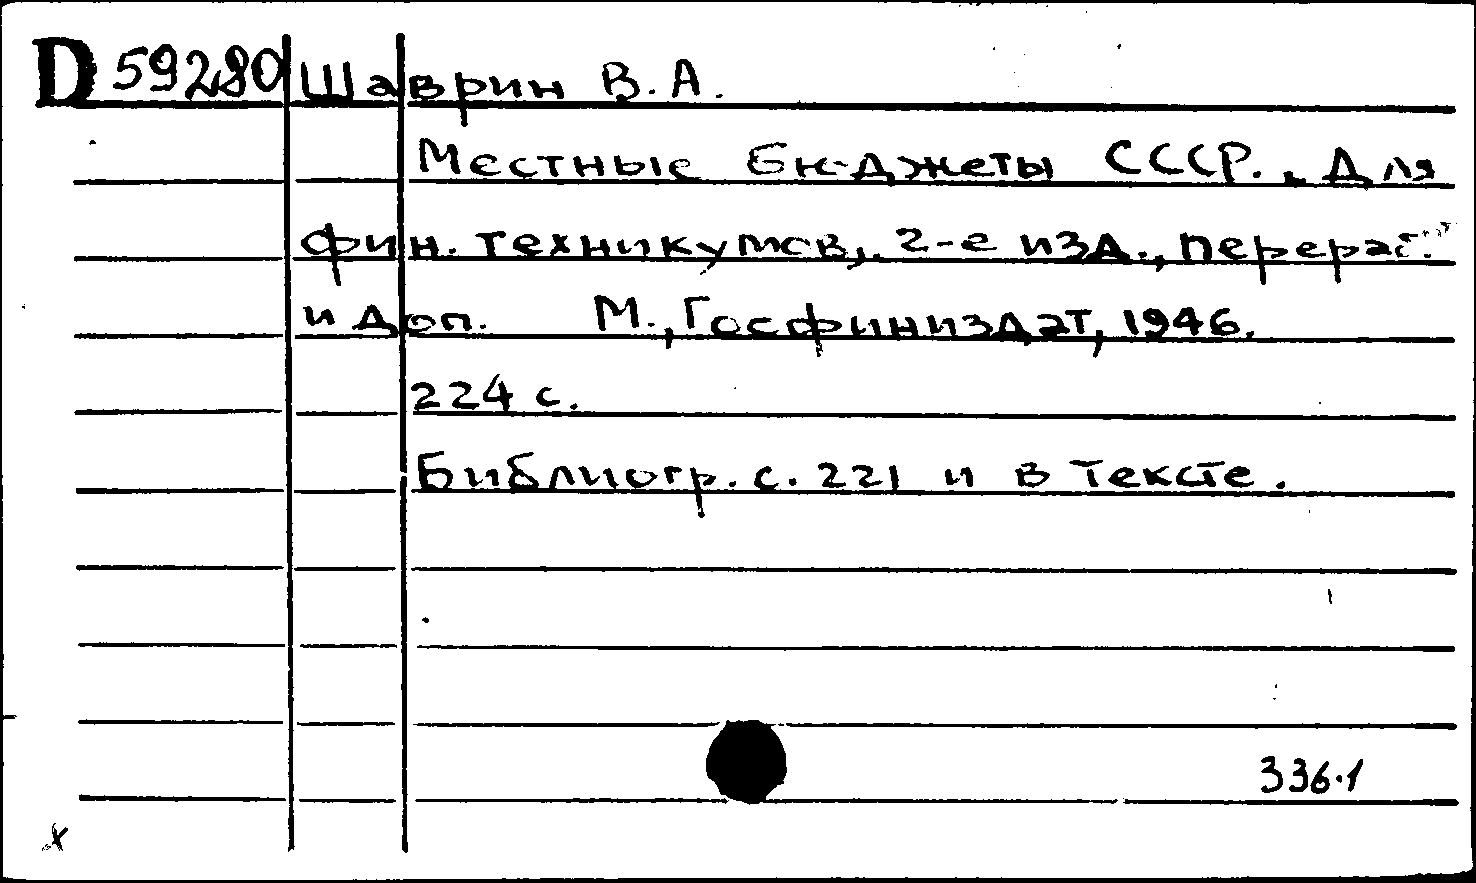 D 59280 Шаврин В. А.
Местные бюджеты СССР. Для
фин. техникумов. 2-е изд., перераб.
и доп. М., Госфиниздат, 1946.
224 с.
Библиогр. с. 221 и в тексте.
336.1
x